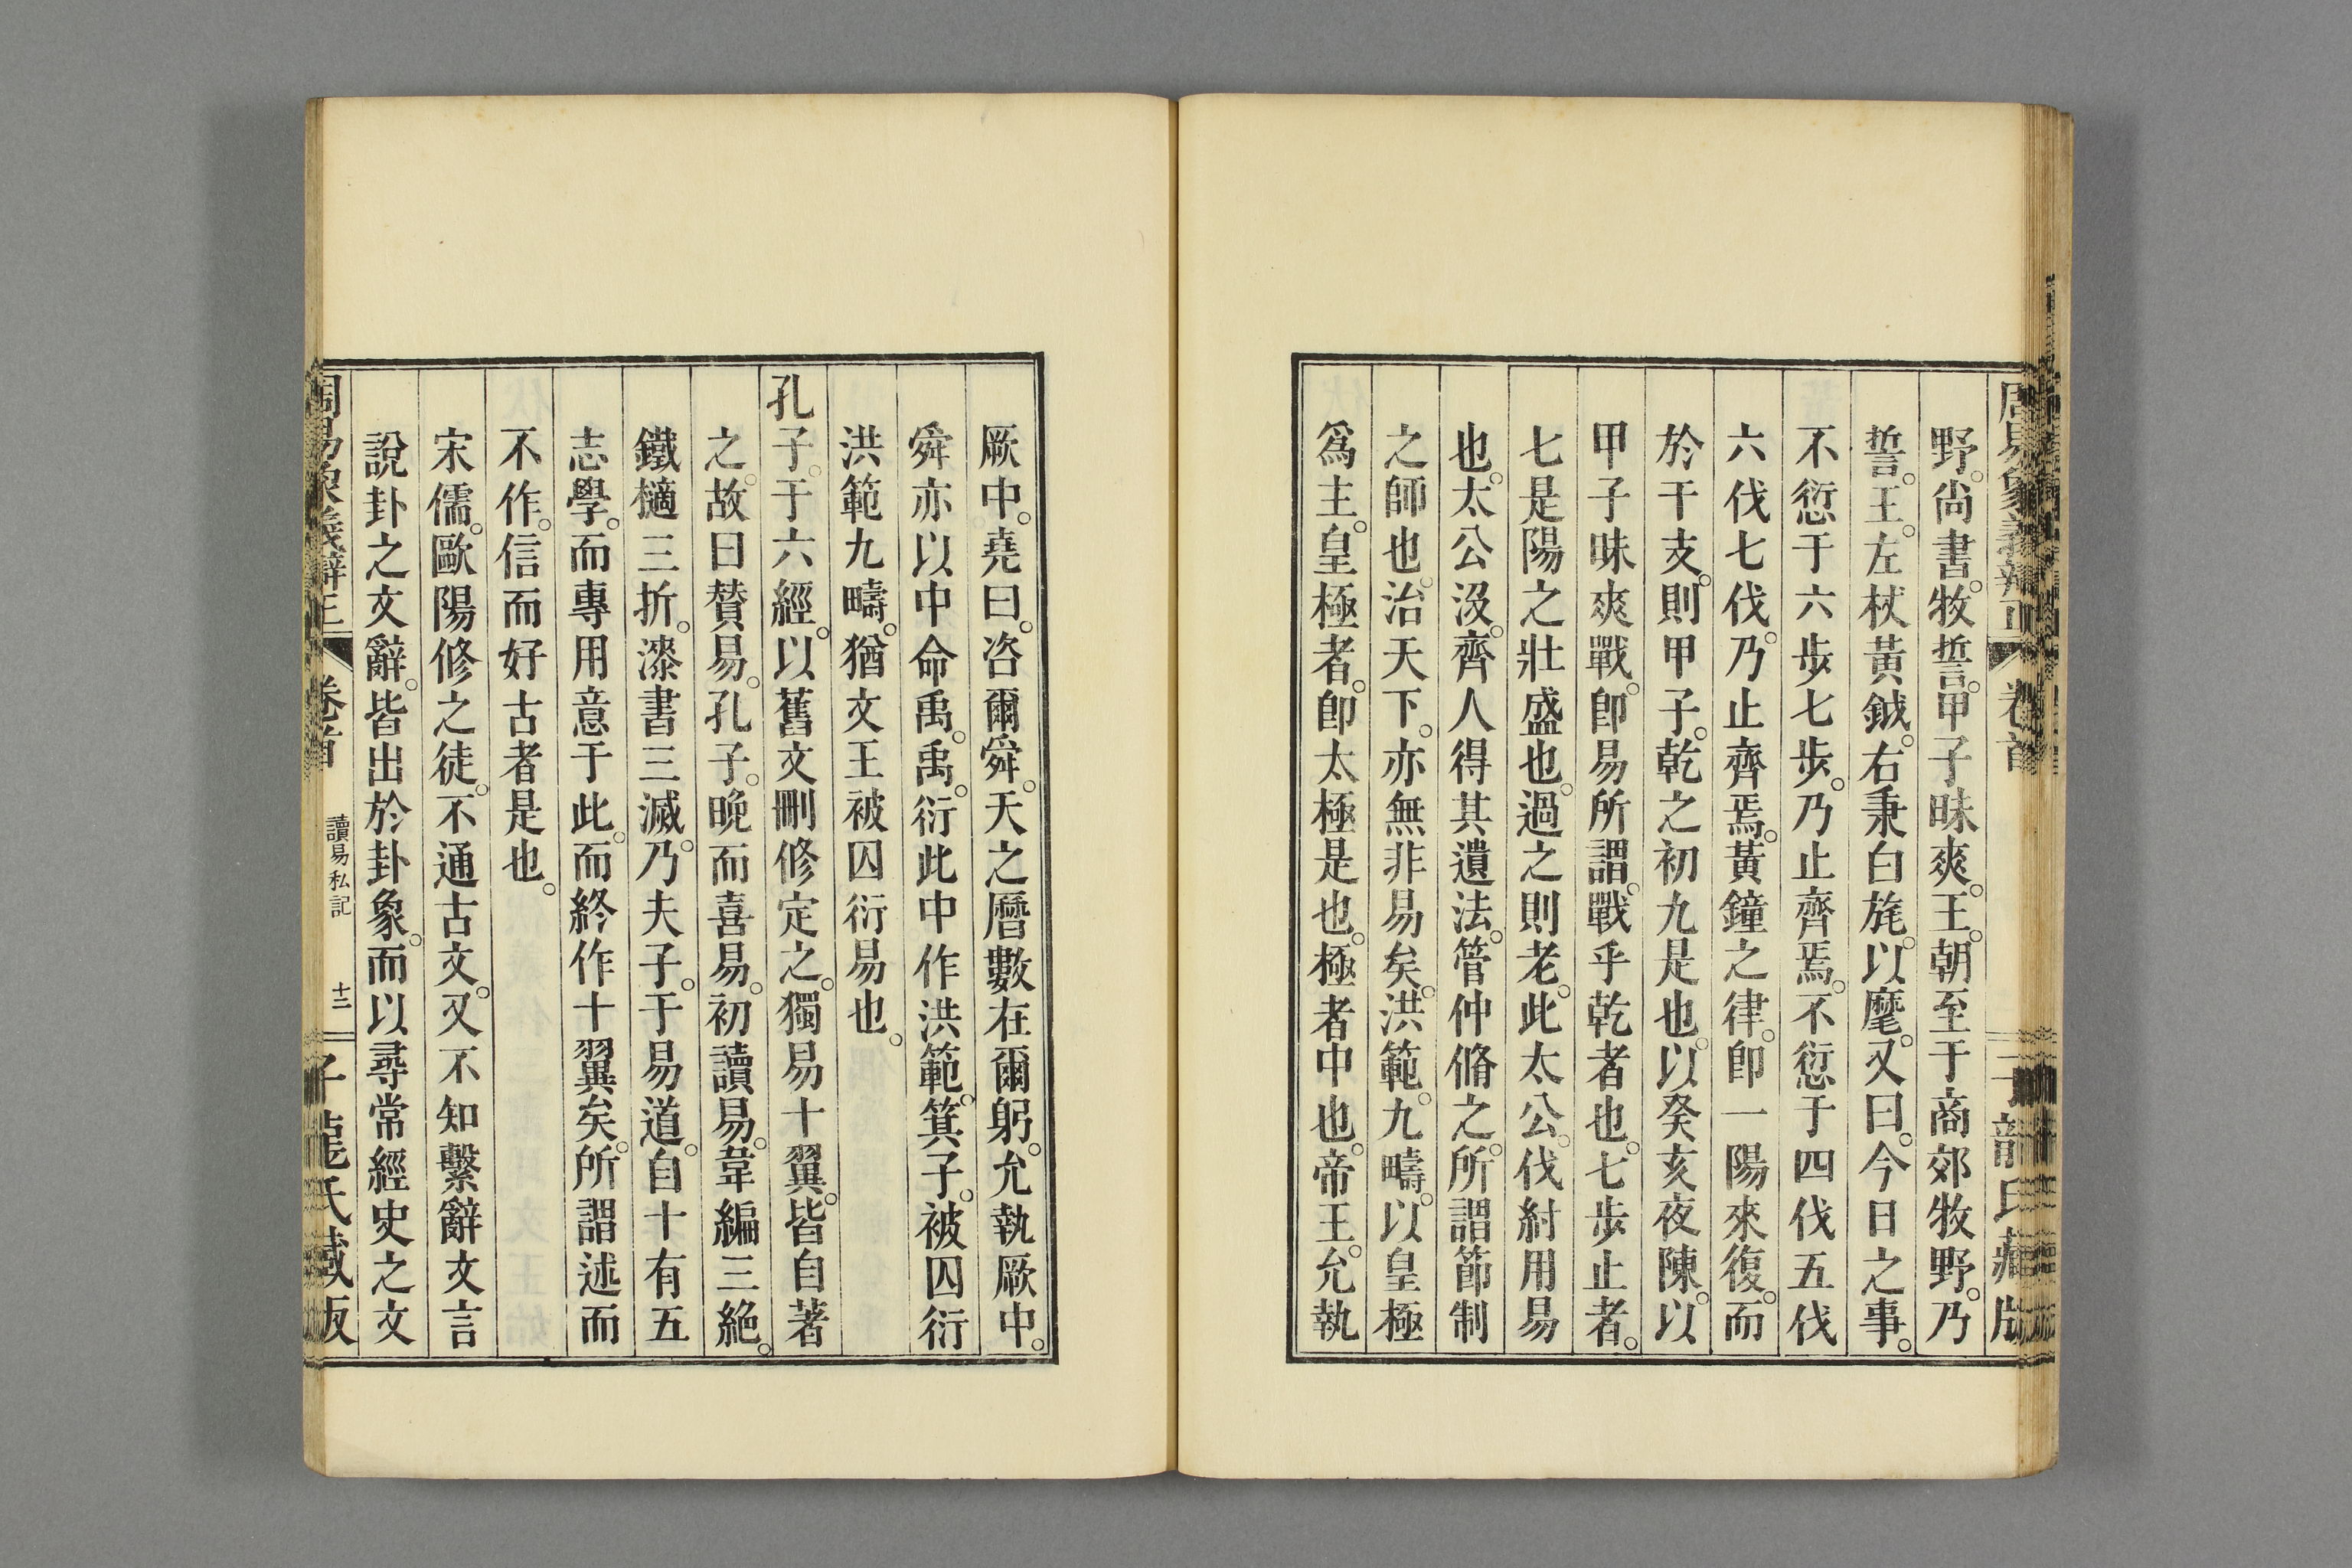 周易象義辨正 卷首 龍氏藏版
野。尚書。牧誓。甲子昧爽。王。朝至于商郊牧野。乃
誓。王。左杖黃鉞。右秉白旄。以麾。又曰。今日之事。
不愆于六步七步。乃止齊焉。不愆于四伐五伐
六伐七伐。乃止齊焉。黃鐘之律。卽一陽來復。而
於干支。則甲子。乾之初九是也。以癸亥夜陳。以
甲子昧爽戰。卽易所謂。戰乎乾者也。七步止者。
七是陽之壯盛也。過之則老。此太公。伐紂用易
也。太公沒。齊人得其遺法。管仲脩之。所謂節制
之師也。治天下。亦無非易矣。洪範。九疇。以皇極
爲主。皇極者。卽太極是也。極者中也。帝王。允執
厥中。堯曰。咨爾舜。天之曆數在爾躬。允執厥中。
舜亦以中命禹。禹。衍此中作洪範。箕子。被囚衍
洪範九疇。猶文王被囚衍易也。
孔子。于六經。以舊文刪修定之。獨易十翼。皆自著
之。故曰贊易。孔子。晚而喜易。初讀易。韋編三絕。
鐵擿三折。漆書三滅。乃夫子。于易道。自十有五
志學。而專用意于此。而終作十翼矣。所謂述而
不作。信而好古者是也。
宋儒。歐陽修之徒。不通古文。又不知繫辭文言
說卦之文辭。皆出於卦象。而以尋常經史之文
周易象義辨正 卷首 讀易私記 十二 子龍氏藏版